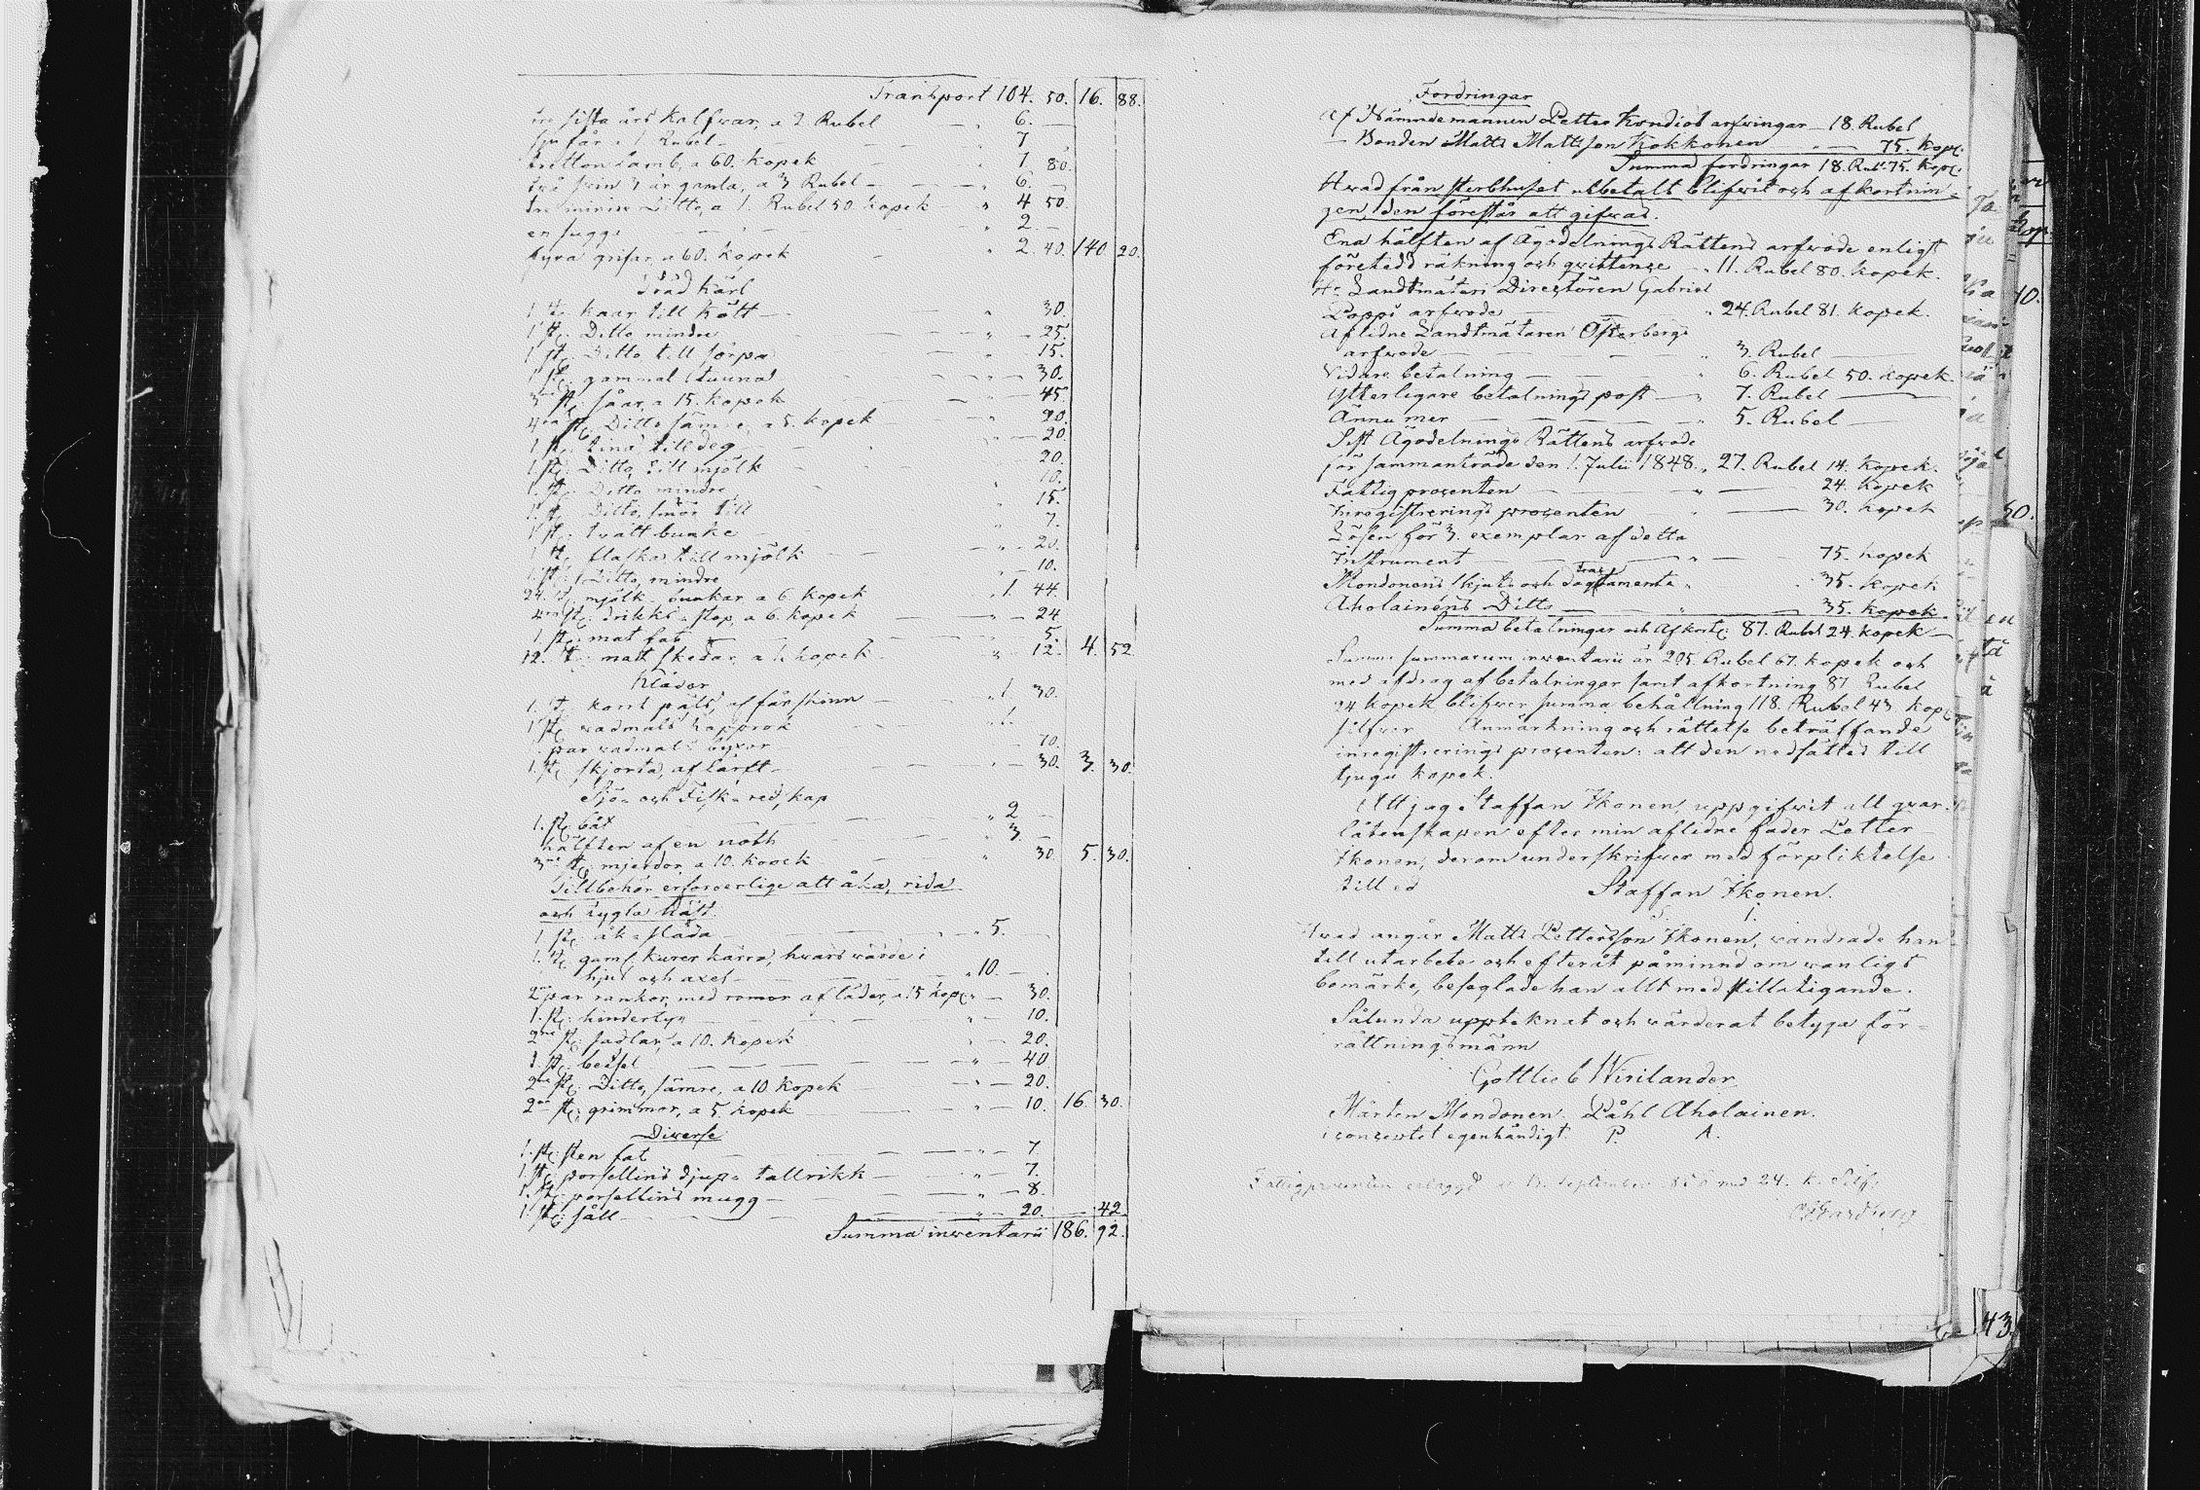 Transport 104. 50. 16. 88.
tre sista års kalfvar, a 2 Rubel — „ 6. —
sju får a 1 Rubel — 7
tretton lamb, a 60. kopek „ 7 80.
två svin 3 år gamla, a 3 Rubel — „ 6. —
tre mindre Ditto, a 1 Rubel 50. kopek „ 4 50.
en sugga „ 2. —
fyra grisar, a 60. kopek „ 2. 40. 140. 20.
Träd kärl
1 st: kaar till kött — „ 30.
1 st: Ditto mindre „ — 25.
1 st: Ditto till sörpa „ 15.
1 st: gammal tunna „ — 30.
3 st: såar, a 15. kopek „ — 45.
4ra st: Ditto sämre, a 5. kopek „ 20.
1 st: tina till deg „ — 20
1. st: Ditto, till mjölk 20.
1. st: Ditto mindre „ 10.
1. st: Ditto, smör till 15.
1 st: tvätt bunke „ 7.
1 st: flaska till mjölk „ — 20.
1. st: Ditto, mindre „ 10.
24. st: mjölk bunkar a 6. kopek „ 1 44.
4ra st: dricks stop, a 6. kopek „ — 24
1. st: mat fat 5.
12. st: matt skedar, a 1. kopek „ — 12. 4. 52
Kläder
1. st: kort päls, af fårskinn „ 1 30.
1 st: vadmals kapprok „ 1.
1 par vadmals byxor — 70.
1. st: skjorta, af lärft — „ — 30. 3. 30.
Sjö- och Fisk-redskap
1. st: båt „ 2 —
hälften af en noth „ 3 —
3ne st: mjerdor, a 10. kopek „ 30 5. 30.
Tillbehör erforderlige att åka, rida
och tygla häst.
1. st: åk-släda „ 5. —
1. st: gaml. kurer kärra, hvars värde i
hjul och axel „ 10. —
2ne par rankor, med remor af läder, a 15 kop: „ — 30.
1. st: hindertyg „ — 10.
2ne st: sadlar, a 10. kopek „ — 20.
1. st: betsel „ — 40
2ne st: Ditto, sämre, a 10 kopek „ — 20.
2ne st: grimmor, a 5. kopek „ — 10. 16. 30.
Diverse
1. st: sten fat „ — 7
1 st: porsellins djup-tallrikk „ — 7.
1. st: porsellins mugg — „ — 8.
1. st: såll „ — 20. — 42.
Summa inventarii 186. 92.
Fordringar
Af Nämndemannen Petter Kondios arfvingar — 18. Rubel
— Bonden Matts Mattsson Kokkonen „ — 75. kop:
Summa fordringar 18. Rub: 75. kop:
Hvad från sterbhuset utbetalt blifvit och afkortnin=
gen, den förestår att gifvas.
Ena hälften af Ägodelnings Rättens arfvode enligt
företedd räkning och qvittence „ 11. Rubel 80. kopek.
Hr Landtmäteri Directören Gabriel
Poppi arfvode „ 24. Rubel 81. kopek.
Aflidne Landtmätaren Österbergs
arfvode — „ 3. Rubel —
Vidare betalning — „ 6. Rubel 50. kopek.
Ytterligare betalnings post — „ 7. Rubel —
Ännu mer — 5. Rubel —
Sist Ägodelnings Rättens arfvode
för sammanträde den 1. Julii 1848. „ 27. Rubel 14. kopek.
Fattigprocenten „ — 24. kopek
Inregistrerings procenten „ — 30. kopek
Lösen för 3. exemplar af detta
Instrument „ — 75. kopek
Mondonens skjuts och dagtraktamente „ 35. kopek
Aholainens Ditto „ — 35. kopek
Summa betalningar och Afkort: 87. Rubel 24. kopek —
Summa summarum inventarii är 205. Rubel 67. kopek och
med afdrag af betalningar samt afkortning 87 Rubel
24 kopek blifver summa behållning 118. Rubel 43 kop:
silfver Anmärkning och rättelse beträffande
inregistrerings procenten: att den nedsättes till
tjugu kopek.
Att jag Staffan Ikonen, uppgifvit all qvar-
låtenskapen efter min aflidne fader Petter
Ikonen, derom underskrifver med förpliktelse
till ed Staffan Ikonen.
S. I.
Hvad angår Matts Pettersson Ikonen, vandrade han
till utarbete och efteråt påmind om vanligt
bomärke, beseglade han allt med stillatigande.
Sålunda upptecknat och värderat betyga för=
rättningsmänn
Gottlieb Wirilander
Mårten Mondonen. Påhl Aholainen.
i concertet egenhändigt. P. A.
Fattigprocenten erlagd d. 13. September 1850 med 24. k. Silfr
43